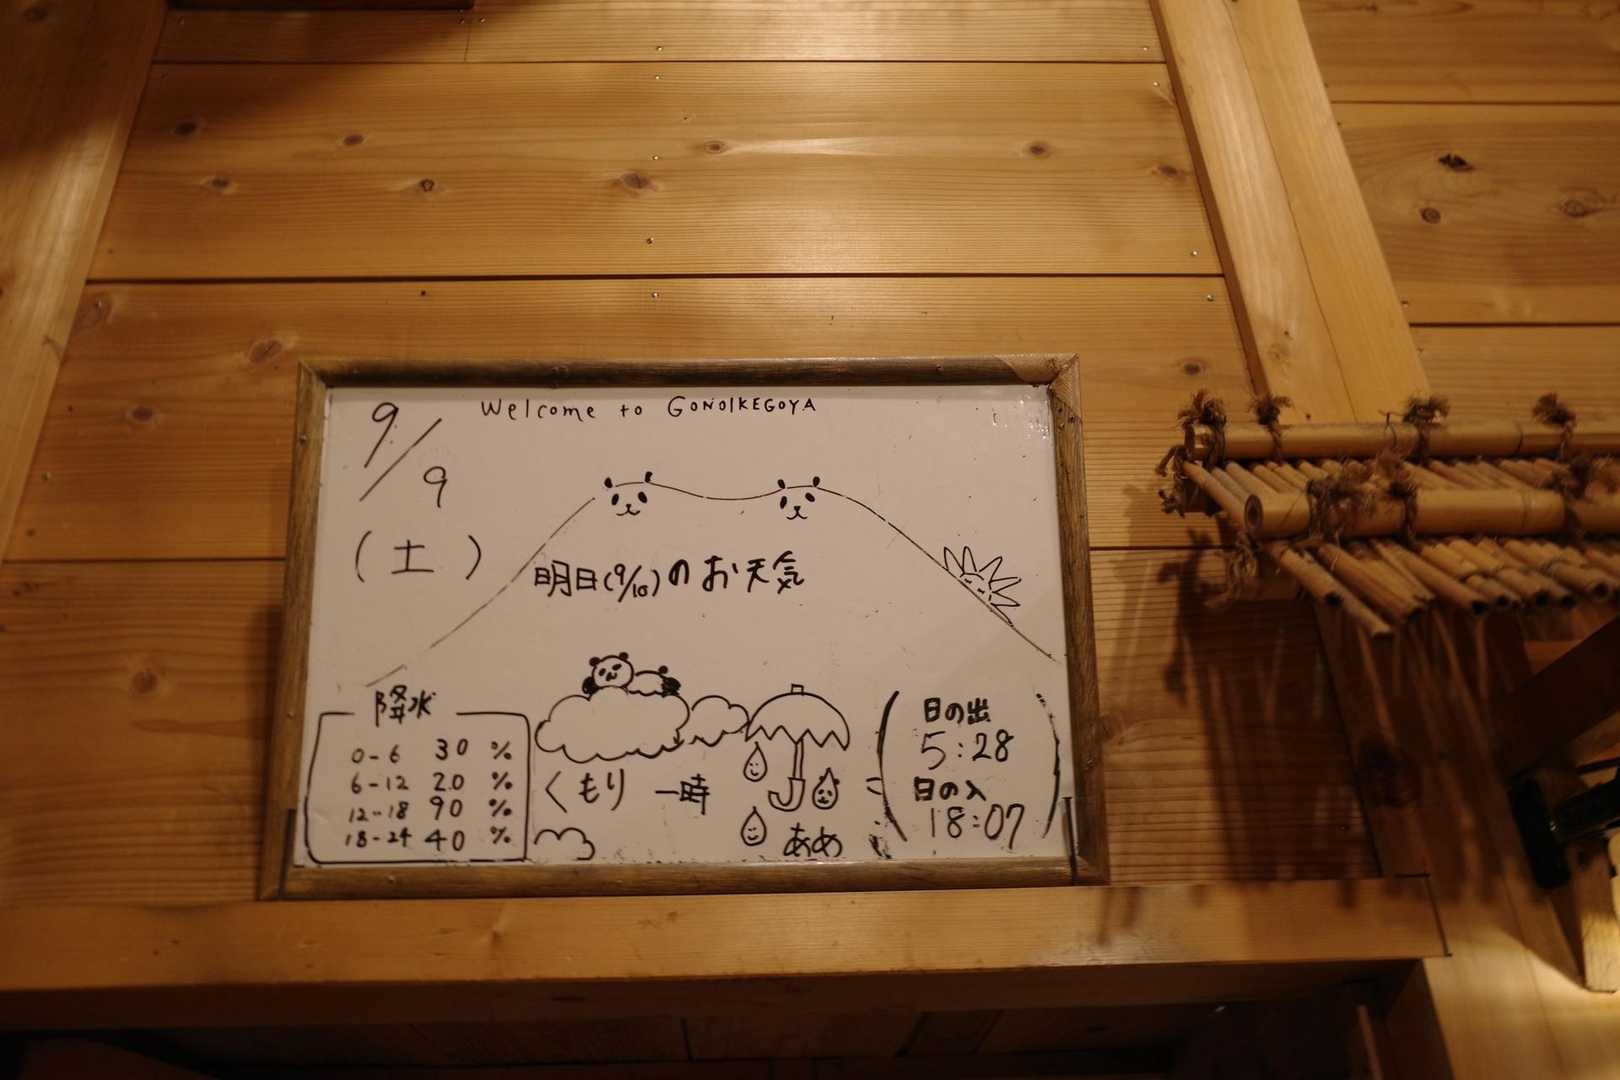 Welcome to GONOIKEGOYA
9/9
(土)
明日(9/10)のお天気
降水
0-6 30 %
6-12 20 %
12-18 90 %
18-24 40 %
くもり 一時
あめ
日の出
5:28
日の入
18:07